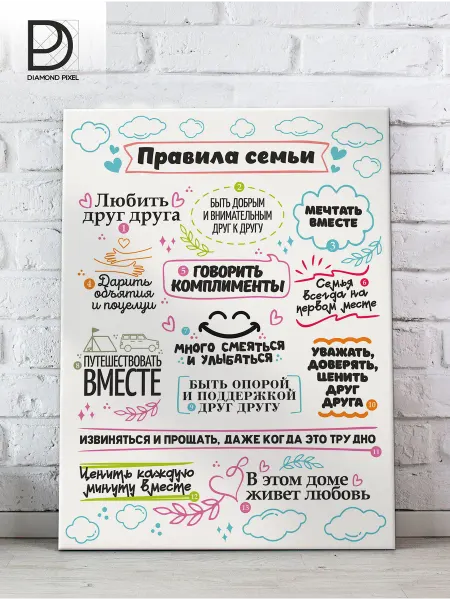 DIAMOND PIXEL
Правила семьи
Любить
друг друга
1
2
БЫТЬ ДОБРЫМ
И ВНИМАТЕЛЬНЫМ
ДРУГ К ДРУГУ
МЕЧТАТЬ
ВМЕСТЕ
3
4
Дарить
объятия
и поцелуи
5
ГОВОРИТЬ
КОМПЛИМЕНТЫ
6
Семья
всегда на
первом месте
7
МНОГО СМЕЯТЬСЯ
И УЛЫБАТЬСЯ
8
ПУТЕШЕСТВОВАТЬ
ВМЕСТЕ
БЫТЬ ОПОРОЙ
И ПОДДЕРЖКОЙ
9
ДРУГ ДРУГУ
УВАЖАТЬ,
ДОВЕРЯТЬ,
ЦЕНИТЬ
ДРУГ
ДРУГА
10
ИЗВИНЯТЬСЯ И ПРОЩАТЬ, ДАЖЕ КОГДА ЭТО ТРУДНО
11
Ценить каждую
минуту вместе
12
В этом доме
живет любовь
13